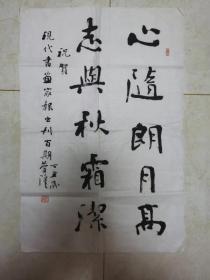 心隨朗月高
志與秋霜潔
祝賀
現代書畫家報出刊百期
丁丑歲